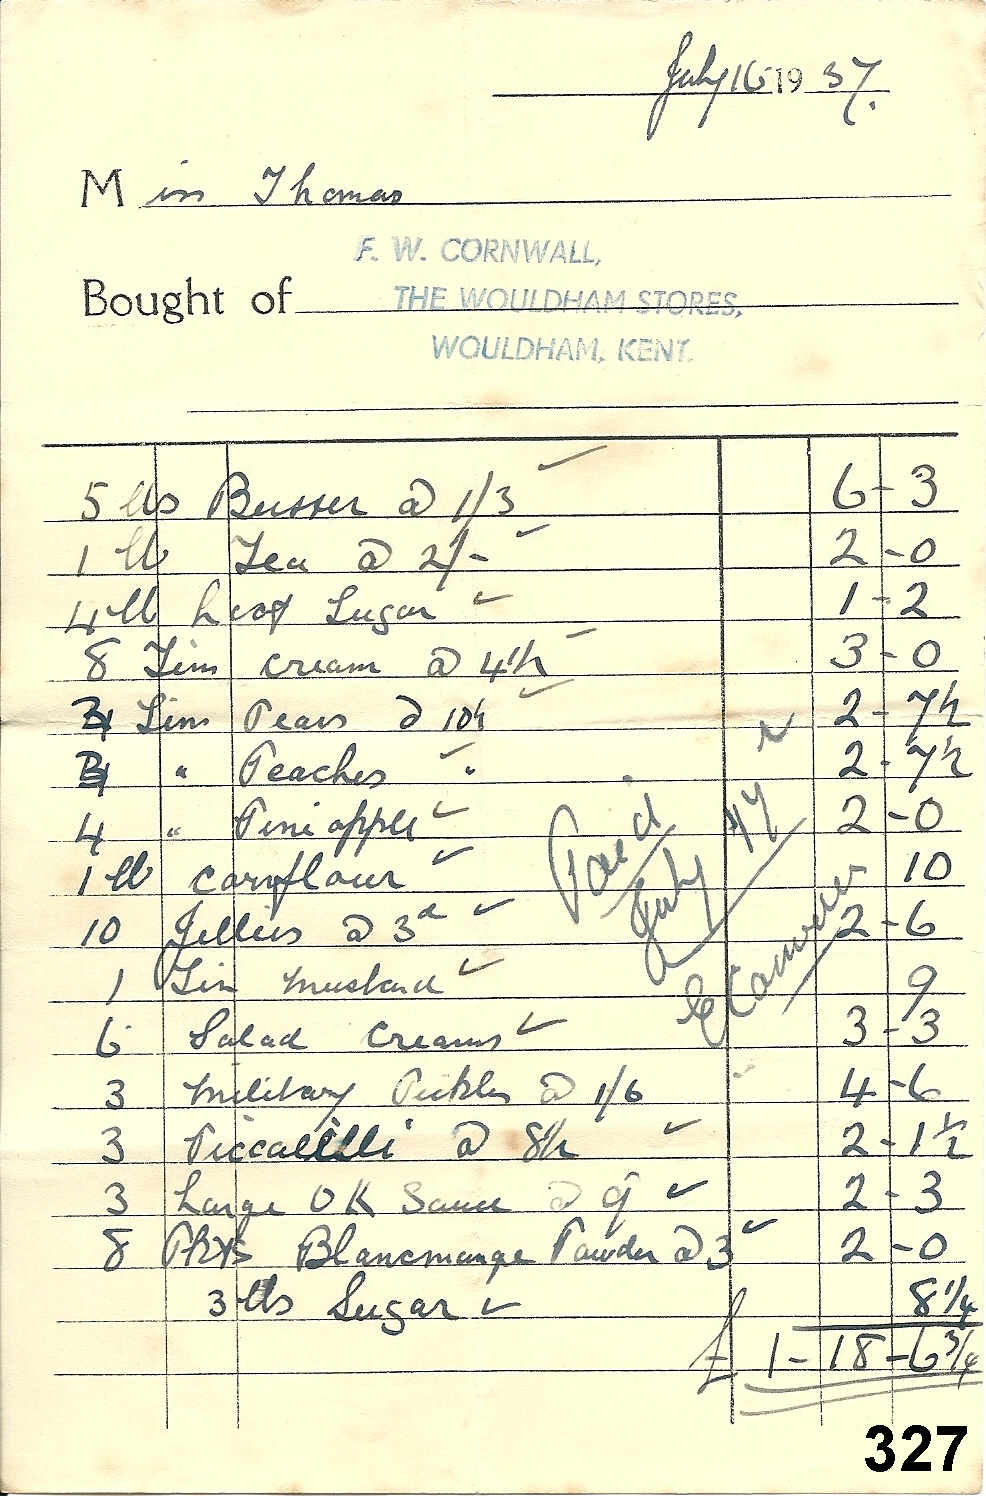 July 16 1937.
Miss Thomas
F. W. CORNWALL,
Bought of THE WOULDHAM STORES,
WOULDHAM, KENT.
5 lbs Butter @ 1/3 ✓ 6-3
1 lb Tea @ 2/- ✓ 2-0
4 lb Loaf Sugar ✓ 1-2
8 Tins Cream @ 4½ ✓ 3-0
3 Tins Pears @ 10½ ✓ 2-7½
3 " Peaches ✓ " 2-7½
4 " Pineapple ✓ 2-0
1 lb Cornflour ✓ 10
10 Jellies @ 3d ✓ 2-6
1 Tin Mustard ✓ 9
6 Salad Creams ✓ 3-3
3 Military Pickles @ 1/6 4-6
3 Piccalilli @ 8½ ✓ 2-1½
3 Large OK Sauce @ 9 ✓ 2-3
8 Pkts Blancmange Powder @ 3 ✓ 2-0
3 lbs Sugar ✓ 8¼
£ 1-18-6¾
Paid
July
327